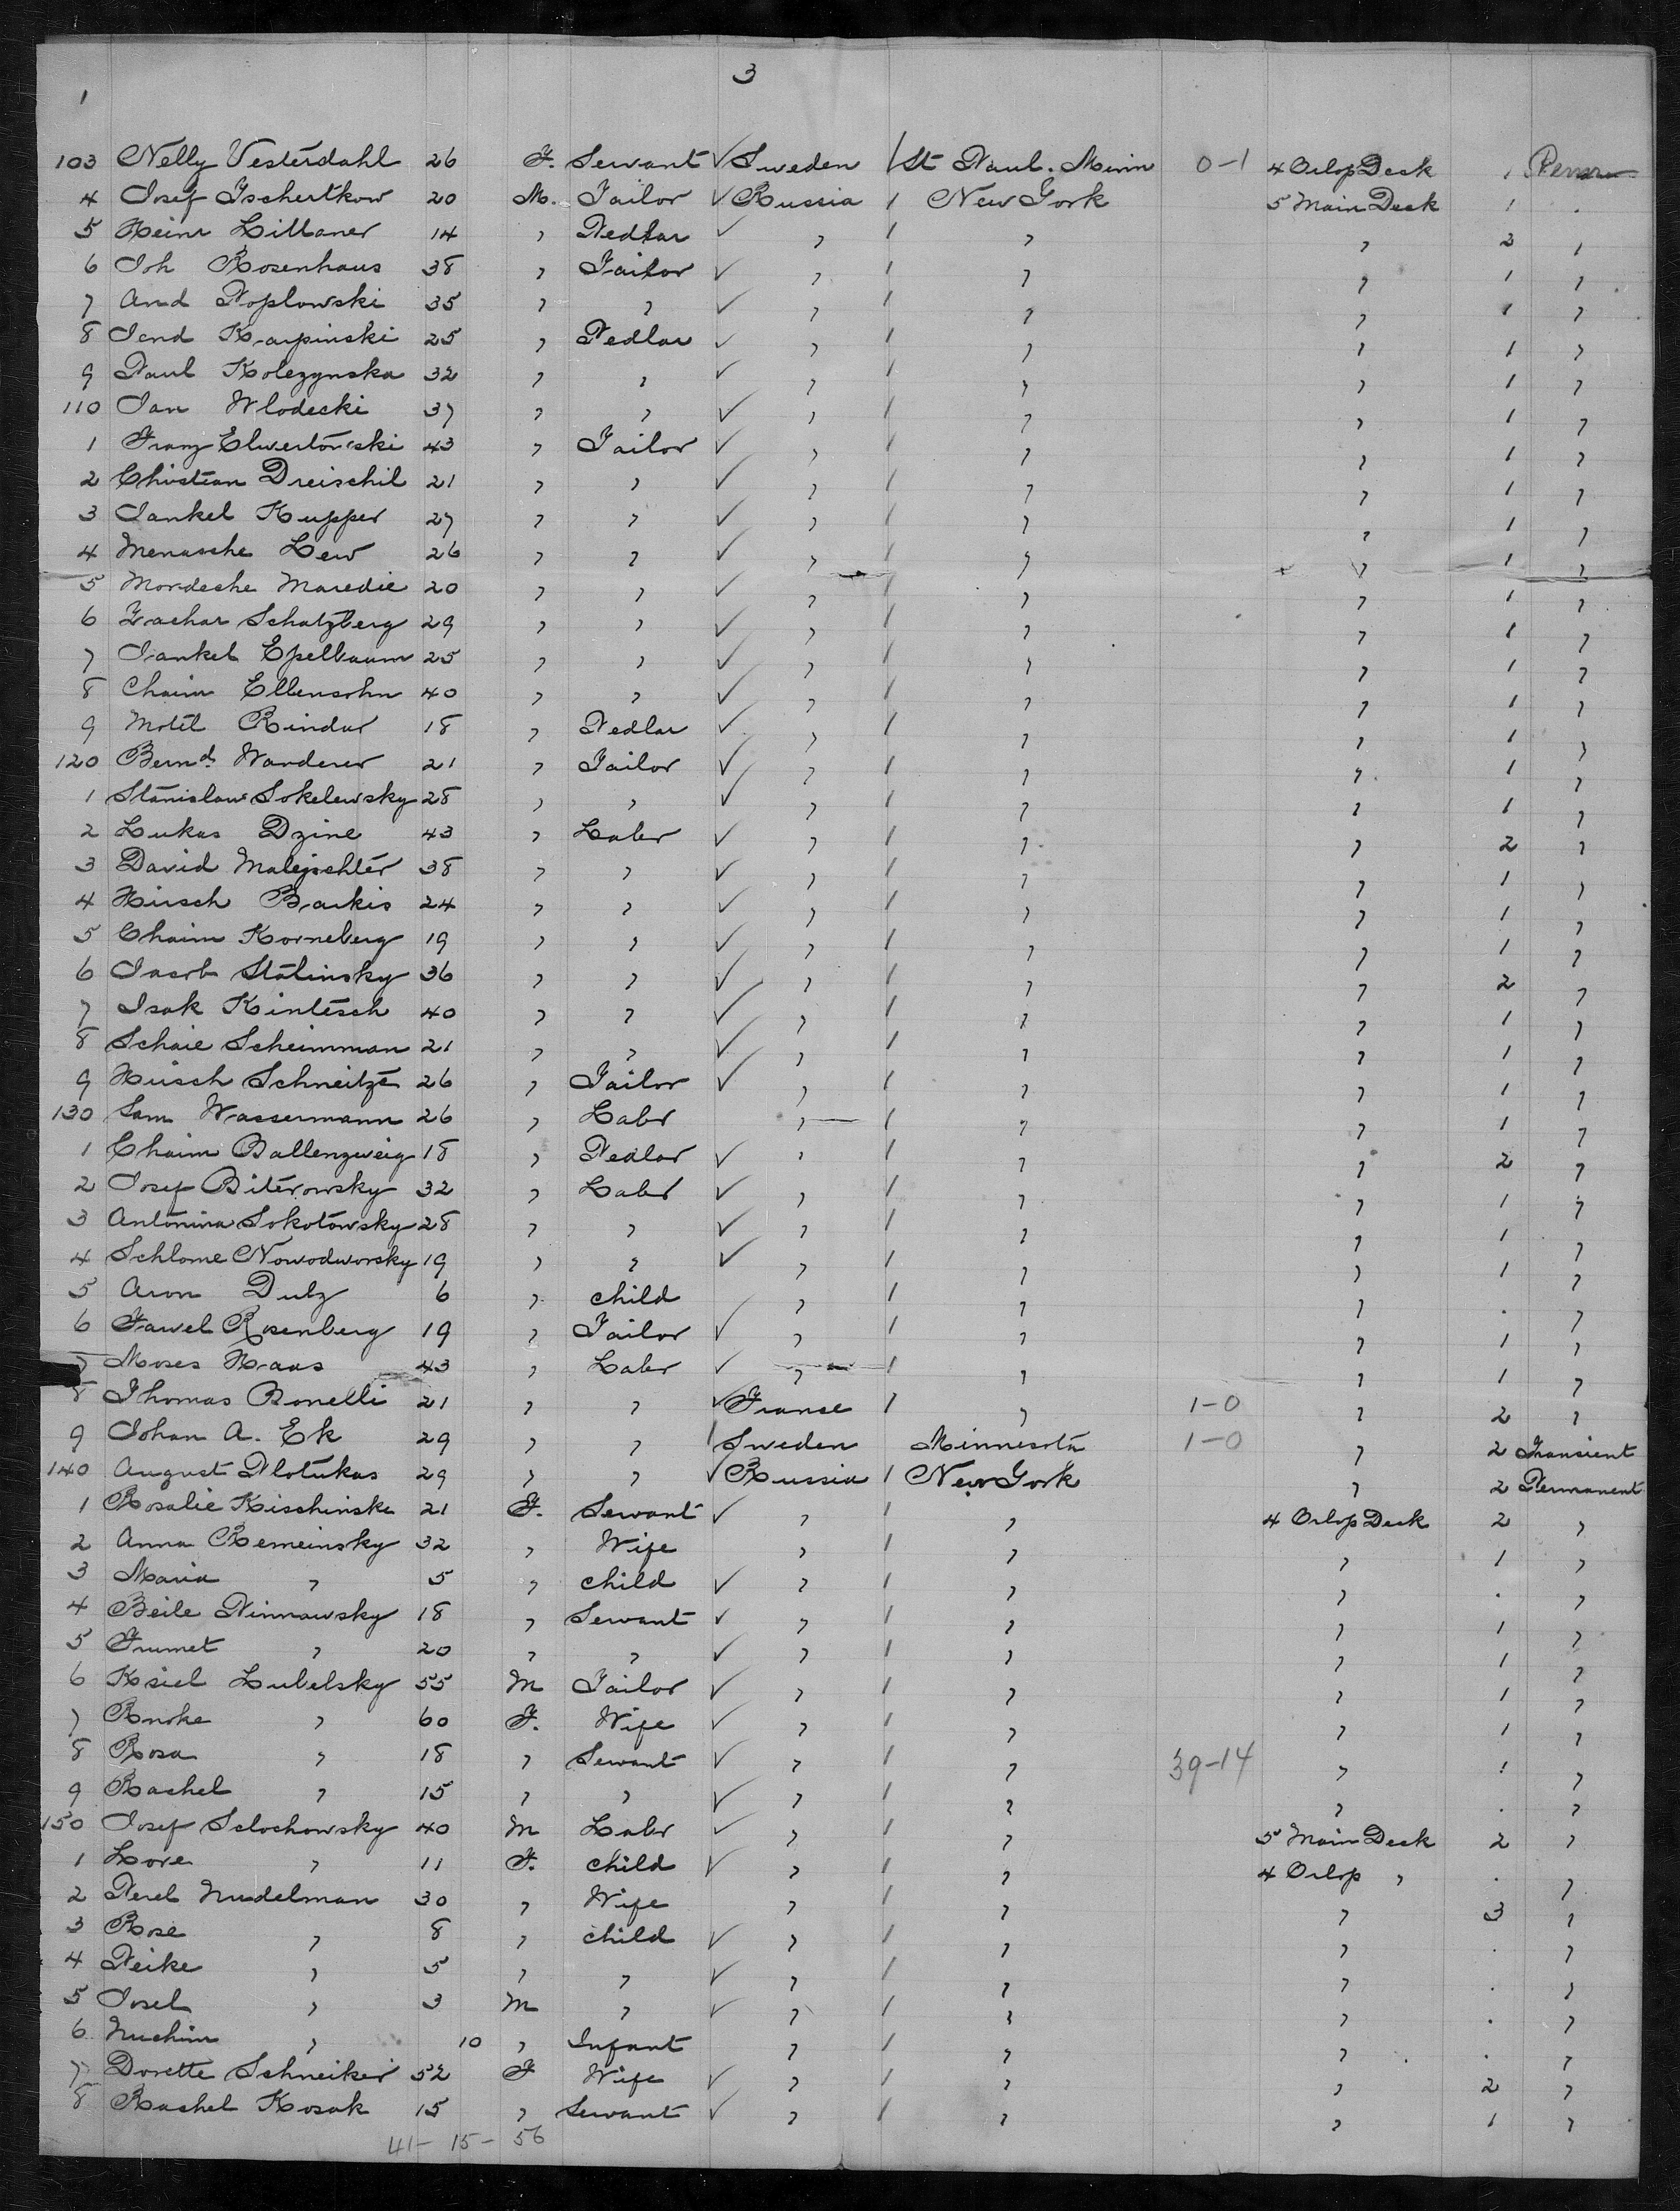 3
1
103 Nelly Vesterdahl 26 F. Servant ✓ Sweden / St Paul. Minn 0-1 4 Orlop Deck 1
4 Josef Tschertkow 20 M. Tailor ✓ Russia / New York 5 Main Deck 1 .
5 Heinr Littaner 14 " Pedlar ✓ " / " " 2 "
6 Joh Rosenhaus 38 " Tailor ✓ " / " " 1 "
7 And Poplowski 35 " " ✓ " / " " 1 "
8 Karpinski 25 " Pedlar ✓ " / " " 1 "
9 Paul Kolezynska 32 " " ✓ " / " " 1 "
110 Jan Wlodecki 37 " " ✓ " / " " 1 "
1 Franz Elwertowski 43 " Tailor ✓ " / " " 1 "
2 Christian Dreischil 21 " " ✓ " / " " 1 "
3 Jankel Kupper 27 " " ✓ " / " " 1 "
4 Menasche Lew 26 " " ✓ " / " " 1 "
5 Mordeche Maredie 20 " " ✓ " / " " 1 "
6 Zachar Schatzberg 29 " " ✓ " / " " 1 "
7 Jankel Epelbaum 25 " " ✓ " / " " 1 "
8 Chaim Ellensohn 40 " " ✓ " / " " 1 "
9 Motel Rindar 18 " Pedlar ✓ " / " " 1 "
120 Bernd. Wanderer 21 " Tailor ✓ " / " " 1 "
1 Stanislaw Sokelewsky 28 " " ✓ " / " " 1 "
2 Lukas Dzine 43 " Labr ✓ " / " " 2 "
3 David 38 " " ✓ " / " " 1 "
4 Hirsch Barkis 24 " " ✓ " / " " 1 "
5 Chaim Korneberg 19 " " ✓ " / " " 1 "
6 Jacob Stalinsky 36 " " ✓ " / " " 2 "
7 Isak Kintesch 40 " " ✓ " / " " 1 "
8 Schaie Scheimman 21 " " ✓ " / " " 1 "
9 Hirsch Schneitze 26 " Tailor ✓ " / " " 1 "
130 Sam Wassermann 26 " Labr " / " " 1 "
1 Chaim Ballenzweig 18 " Pedlar ✓ " / " " 2 "
2 Josef Biterowsky 32 " Labr ✓ " / " " 1 "
3 Antonina Sokotowsky 28 " " ✓ " / " " 1 "
4 Schlome Nowodworsky 19 " " ✓ " / " " 1 "
5 Aron Dulz 6 " child " / " " . "
6 Fawel Rosenberg 19 " Tailor ✓ " / " " 1 "
7 Moses Haas 43 " Labr ✓ " / " " 1 "
8 Thomas Bonelli 21 " " ✓ France / " 1-0 " 2 "
9 Johan A. Ek 29 " " / Sweden Minnesota 1-0 " 2 Transient
140 August Plotukas 29 " " ✓ Russia / New York " 2 Permanent
1 Rosalie Kischinske 21 F. Servant ✓ " / " 4 Orlop Deck 2 "
2 Anna Remeinsky 32 " Wife " / " " 1 "
3 Maria " 5 " child ✓ " / " " . "
4 Beile Pinnawsky 18 " Servant ✓ " / " " 1 "
5 Frumet " 20 " " ✓ " / " " 1 "
6 Ksiel Lubelsky 55 M Tailor ✓ " / " " 1 "
7 " 60 F. Wife ✓ " / " " 1 "
8 Rosa " 18 " Servant ✓ " / " 39-14 " 1 "
9 Rachel " 15 " " ✓ " / " " . "
150 Josef Sclochowsky 40 M Labr ✓ " / " 5 Main Deck 2 "
1 Lore " 11 F. child ✓ " / " 4 Orlop " . "
2 Perel Nudelman 30 " Wife " / " " 3 "
3 Rose " 8 " child ✓ " / " " . "
4 Peike " 5 " " ✓ " / " " . "
5 Josel " 3 M " ✓ " / " " . "
6 Nuchim " 10 " Infant " / " " . "
7 Dorette Schneiker 52 F Wife ✓ " / " " 2 "
8 Rachel Kosak 15 " Servant ✓ " / " " 1 "
41- 15- 56